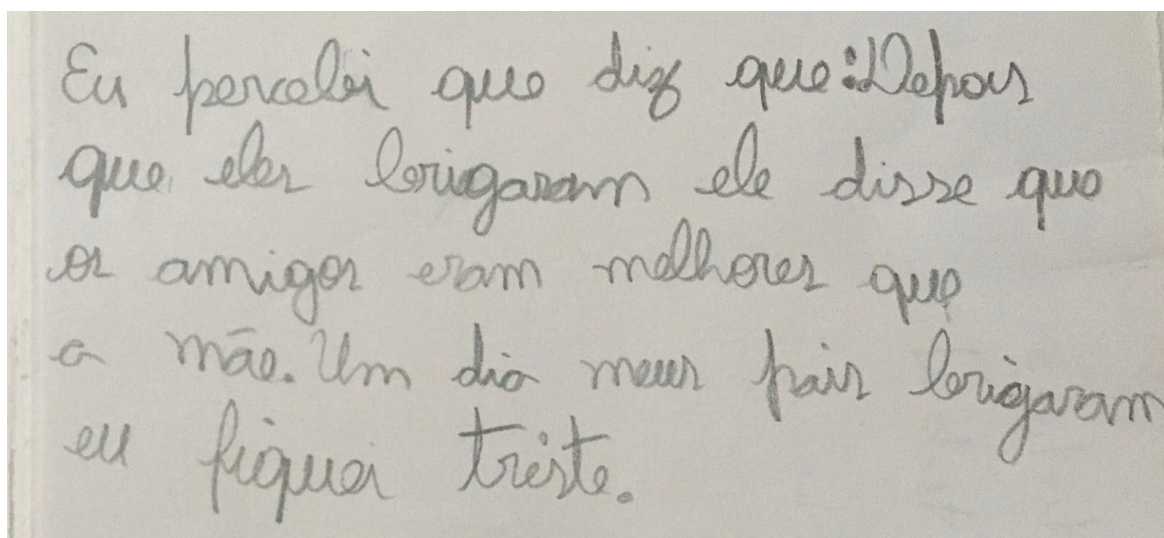 Eu percebi que diz que: Depois
que eles brigaram ele disse que
os amigos eram melhores que
a mãe. Um dia meus pais brigaram
eu fiquei triste.